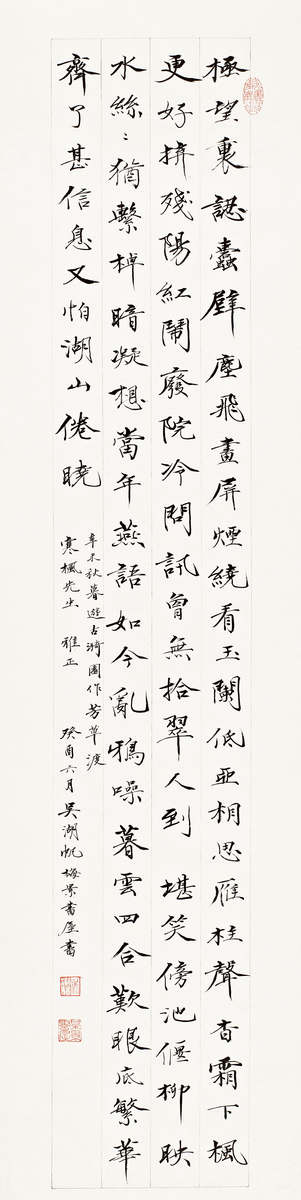 極望裏認蠹壁塵飛畫屏煙繞看玉闌低亞相思雁柱聲杳霜下楓
更好拚殘陽紅鬧廢院冷問訊曾無拾翠人到 堪笑傍池偃柳映
水絲絲猶繫棹暗凝想當年燕語如今亂鴉噪暮雲四合歎眼底繁華
齊了甚信息又怕湖山倦曉
辛未秋暮遊古漪園作芳草渡
寒楓先生 雅正 癸酉六月吳湖帆梅景書屋書